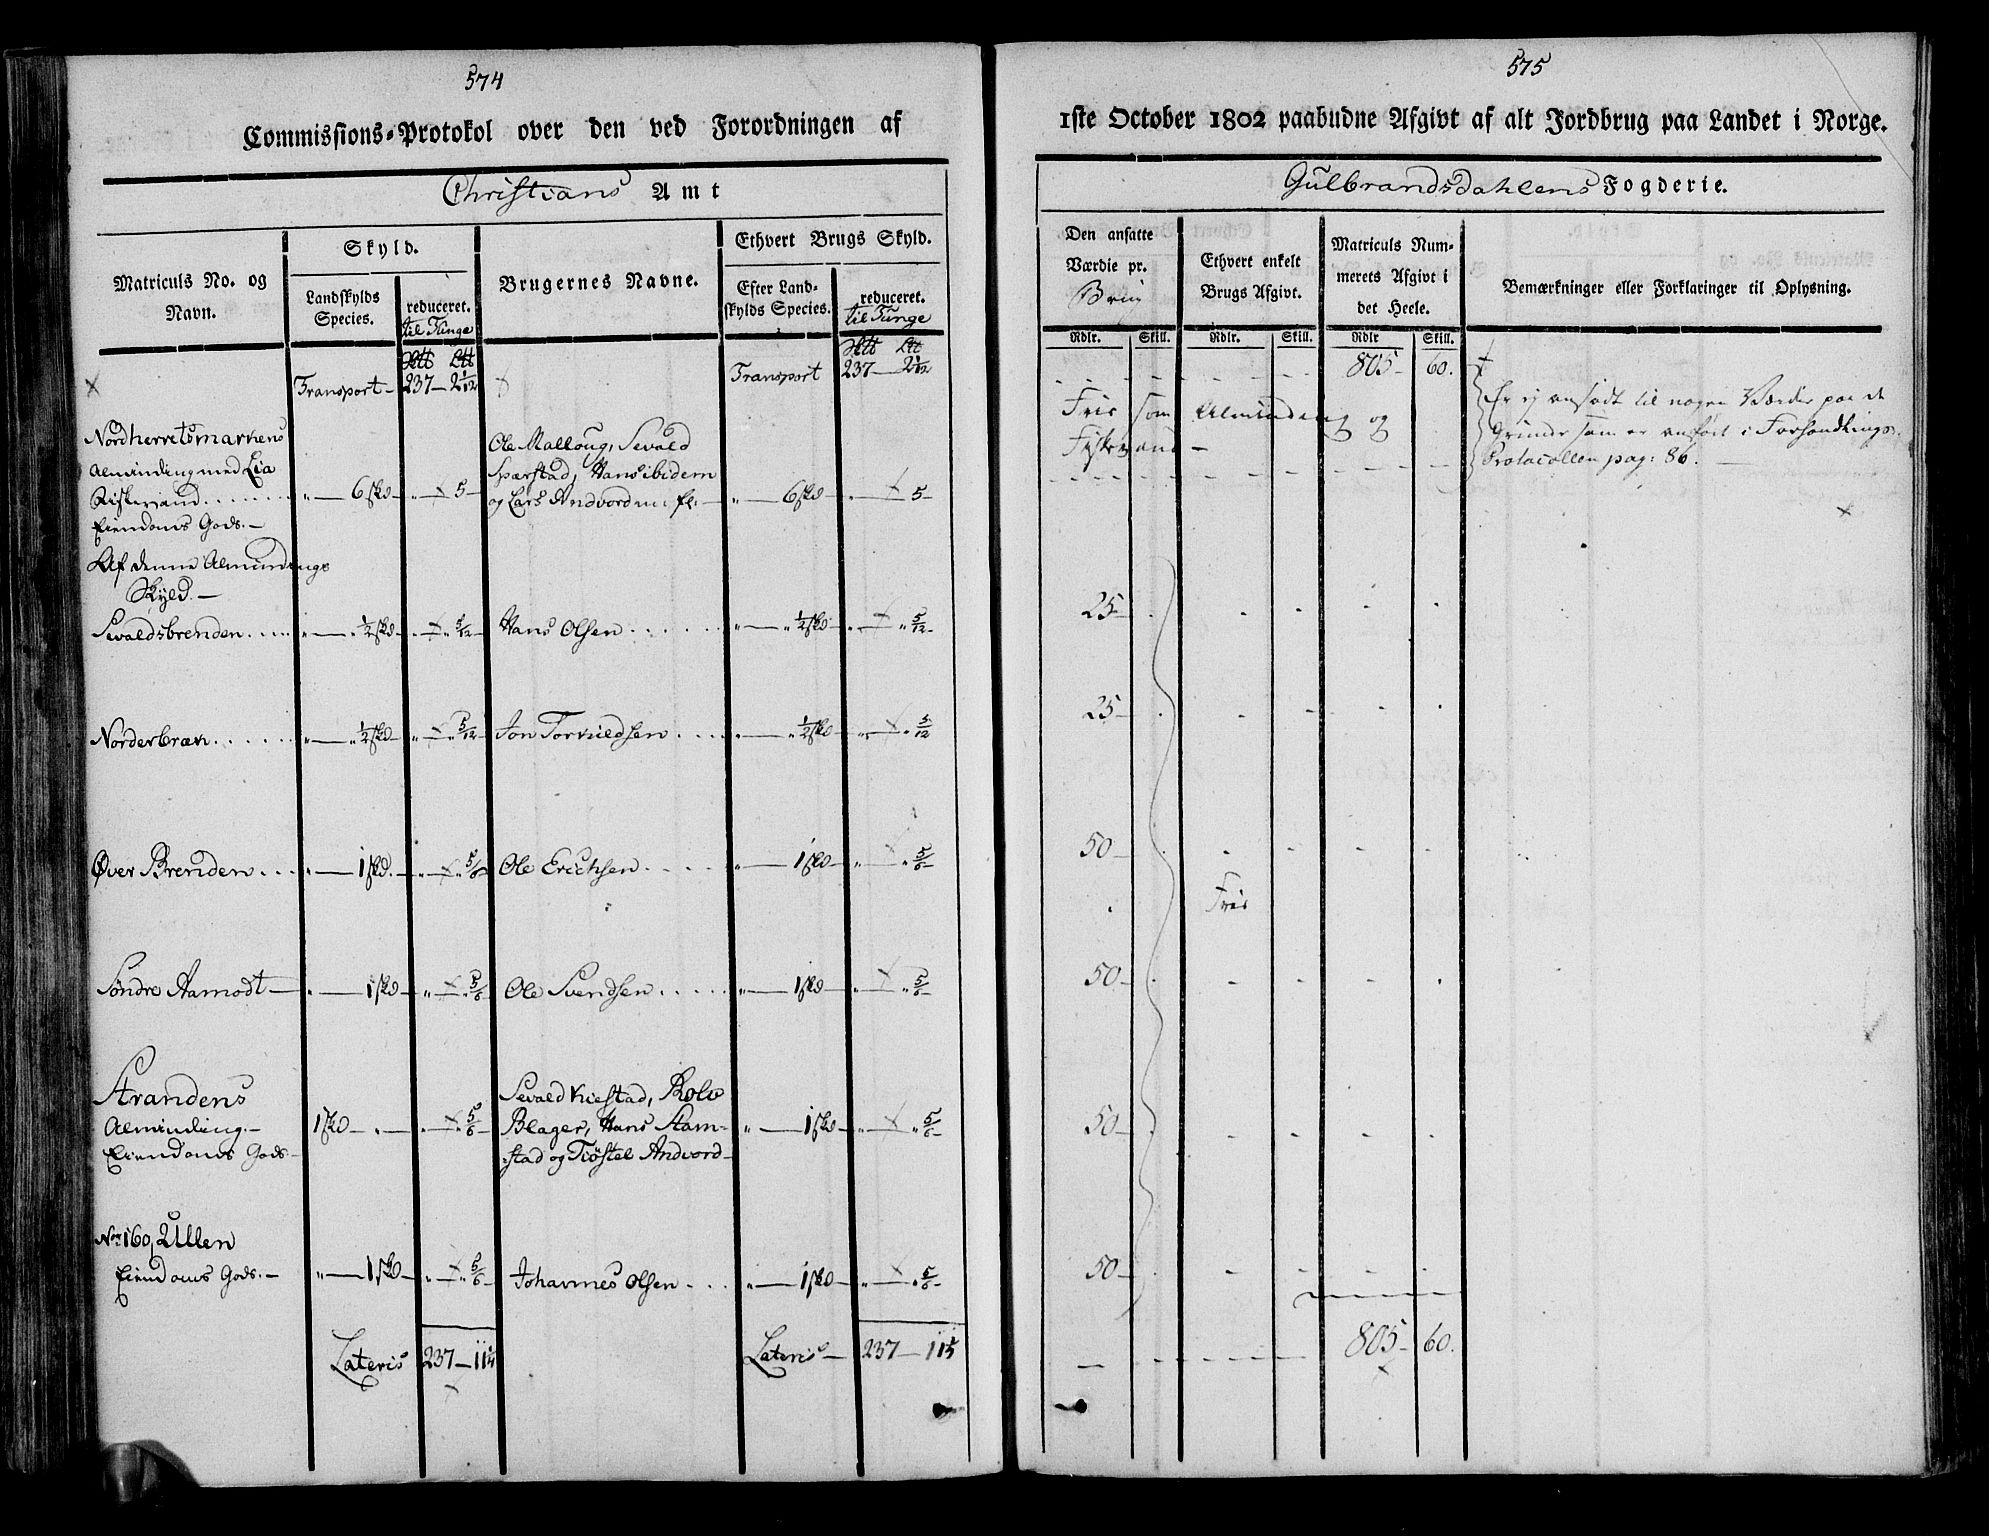 574
Commissions-Protokol over den ved Forordningen af
Christians Amt
Matriculs No. og Navn.
Skyld.
Landskylds Species.
reduceret. til Tunge
Brugernes Navne.
Ethvert Brugs Skyld.
Efter Landskylds Species.
reduceret. til Tunge
Transport 237 2 1/12
Transport 237 2 1/12
Nordherretsmarkens
Almindingmed Lia
Fiskevand
Eiendoms Gods.
6 skd 5
Ole Malloug, Sevald
Sparstad, Hans ibidem
og Lars Andvord m: fl:
6 skd 5
Af denne Almindings
Skyld.
Sevaldsbrenden 1/2 skd 5/12 Hans Olsen 1/2 skd 5/12
Norderbræk 1/2 skd 5/12 Jon Torkildsen 1/2 skd 5/12
Øver Brenden 1 skd. 5/6 Ole Erichsen 1 skd 5/6
Søndre Aamodt 1 skd 5/6 Ole Svendsen 1 skd 5/6
Strandens
Alminding.
Eiendoms Gods
1 skd 5/6
Sevald Kiestad, Rolv
Blager, Hans Stam-
stad og Tiøstel Andvord
1 skd 5/6
No 160, Ullen
Eiendoms Gods.
1 skd 5/6 Johannes Olsen 1 skd 5/6
Lateris 237 11
Lateris 237 11
575
1ste October 1802 paabudne Afgivt af alt Jordbrug paa Landet i Norge.
Gulbrandsdahlens Fogderie.
Den ansatte Værdie pr. Brug
Ethvert enkelt Brugs Afgivt.
Matriculs Nummerets Afgivt i det Heele.
Bemærkninger eller Forklaringer til Oplysning.
Rdlr. Skill. Rdlr. Skill. Rdlr Skill.
805 60.
Frie som Alminding og
Fiskevand
Er ej ansadt til nogen Værdie paa de
Grunde som er anført i Forhandlings
Protocollen pag: 86.
25
25
50
Frie
50
50
50
805 60.